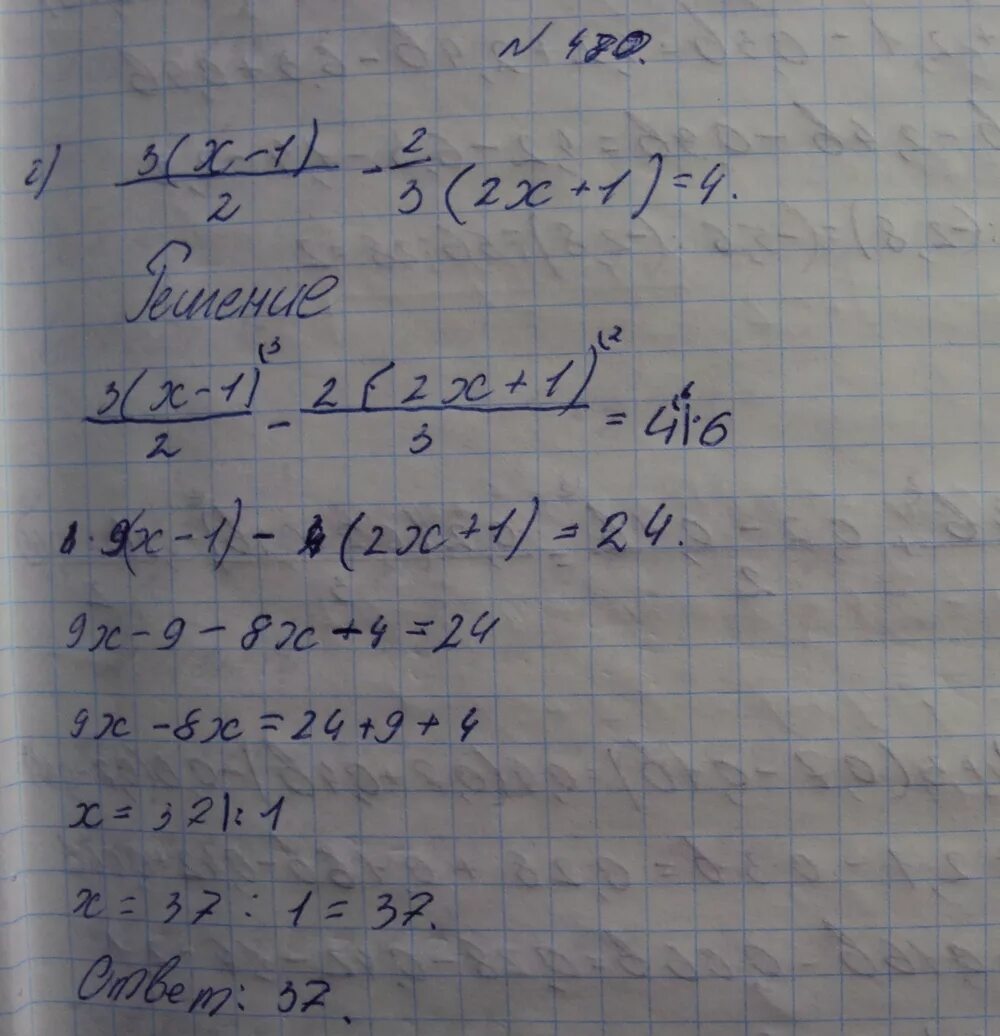 № 480.
г) 3(x-1)/2 - 2/3 (2x+1) = 4.
Решение
3(x-1)⁽³/2 - 2(2x+1)⁽²/3 = 4⁽⁶|·6
9(x-1) - 4(2x+1) = 24.
9x-9-8x+4=24
9x-8x=24+9+4
x=37|:1
x=37:1=37.
Ответ: 37.